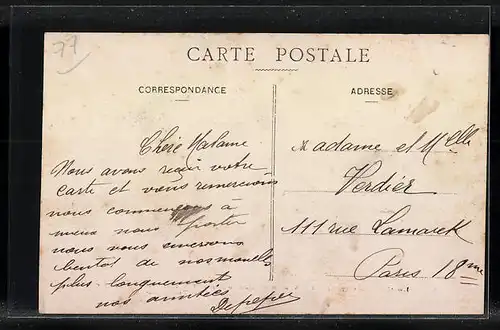 77
CARTE POSTALE
CORRESPONDANCE
ADRESSE
Chère Madame
Nous avons reçu votre
carte et vous remercions
nous commençons à
mieux nous porter
nous vous enverrons
bentot de nos nouvelles
plus longuement
nos amitiés
Madame et Melle
Verdier
111 rue Lamarck
Paris 18me